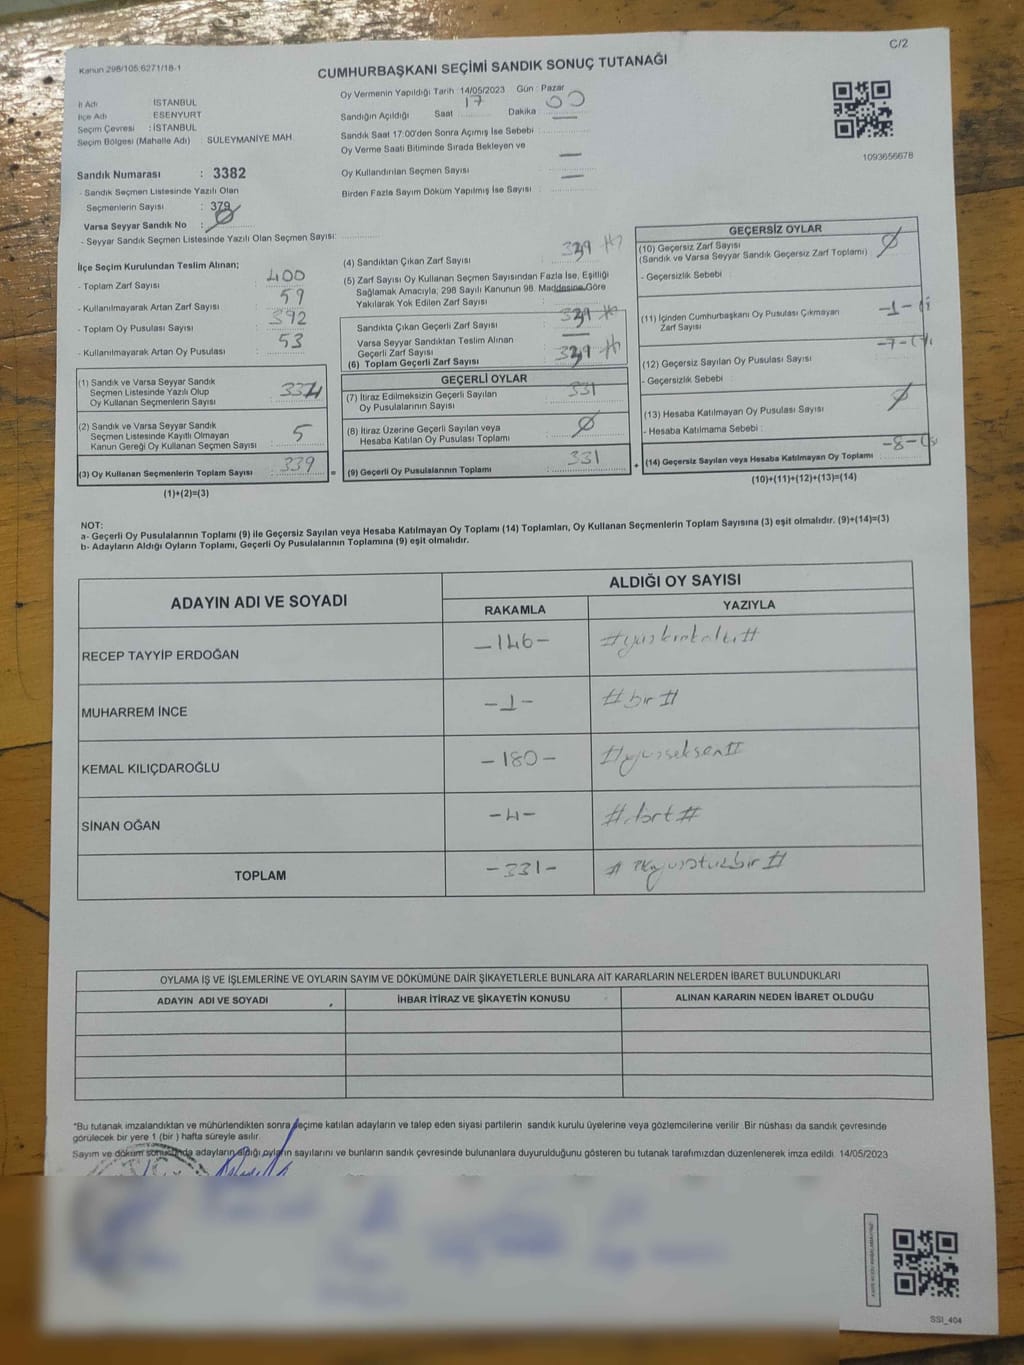 C/2
Kanun 298/105 6271/18-1
CUMHURBAŞKANI SEÇİMİ SANDIK SONUÇ TUTANAĞI
İl Adı İSTANBUL
İlçe Adı ESENYURT
Seçim Çevresi : İSTANBUL
Seçim Bölgesi (Mahalle Adı) : SULEYMANİYE MAH.
Sandık Numarası : 3382
- Sandık Seçmen Listesinde Yazılı Olan
Seçmenlerin Sayısı : 379
Varsa Seyyar Sandık No : Ø
- Seyyar Sandık Seçmen Listesinde Yazılı Olan Seçmen Sayısı:
Oy Vermenin Yapıldığı Tarih :14/05/2023 Gün : Pazar
Sandığın Açıldığı Saat 17 Dakika 00
Sandık Saat 17:00'den Sonra Açımış İse Sebebi :
Oy Verme Saati Bitiminde Sırada Bekleyen ve
Oy Kullandırılan Seçmen Sayısı : —
Birden Fazla Sayım Döküm Yapılmış İse Sayısı : —
1093656678
İlçe Seçim Kurulundan Teslim Alınan;
- Toplam Zarf Sayısı : 400
- Kullanılmayarak Artan Zarf Sayısı : 59
- Toplam Oy Pusulası Sayısı : 392
- Kullanılmayarak Artan Oy Pusulası : 53
(1) Sandık ve Varsa Seyyar Sandık
Seçmen Listesinde Yazılı Olup
Oy Kullanan Seçmenlerin Sayısı : 334
(2) Sandık ve Varsa Seyyar Sandık
Seçmen Listesinde Kayıtlı Olmayan
Kanun Gereği Oy Kullanan Seçmen Sayısı : 5
(3) Oy Kullanan Seçmenlerin Toplam Sayısı : 339
(1)+(2)=(3)
(4) Sandıktan Çıkan Zarf Sayısı : 339
(5) Zarf Sayısı Oy Kullanan Seçmen Sayısından Fazla İse, Eşitliği
Sağlamak Amacıyla, 298 Sayılı Kanunun 98. Maddesine Göre
Yakılarak Yok Edilen Zarf Sayısı : —
Sandıkta Çıkan Geçerli Zarf Sayısı : 339
Varsa Seyyar Sandıktan Teslim Alınan
Geçerli Zarf Sayısı : —
(6) Toplam Geçerli Zarf Sayısı : 339
GEÇERLİ OYLAR
(7) İtiraz Edilmeksizin Geçerli Sayılan
Oy Pusulalarının Sayısı : 331
(8) İtiraz Üzerine Geçerli Sayılan veya
Hesaba Katılan Oy Pusulası Toplamı : Ø
(9) Geçerli Oy Pusulalarının Toplamı : 331
GEÇERSİZ OYLAR
(10) Geçersiz Zarf Sayısı : Ø
(Sandık ve Varsa Seyyar Sandık Geçersiz Zarf Toplamı)
- Geçersizlik Sebebi :
(11) İçinden Cumhurbaşkanı Oy Pusulası Çıkmayan
Zarf Sayısı : -1-
(12) Geçersiz Sayılan Oy Pusulası Sayısı : -7-
- Geçersizlik Sebebi :
(13) Hesaba Katılmayan Oy Pusulası Sayısı : Ø
- Hesaba Katılmama Sebebi :
(14) Geçersiz Sayılan veya Hesaba Katılmayan Oy Toplamı : -8-
(10)+(11)+(12)+(13)=(14)
NOT:
a- Geçerli Oy Pusulalarının Toplamı (9) ile Geçersiz Sayılan veya Hesaba Katılmayan Oy Toplamı (14) Toplamları, Oy Kullanan Seçmenlerin Toplam Sayısına (3) eşit olmalıdır. (9)+(14)=(3)
b- Adayların Aldığı Oyların Toplamı, Geçerli Oy Pusulalarının Toplamına (9) eşit olmalıdır.
ADAYIN ADI VE SOYADI ALDIĞI OY SAYISI
RAKAMLA YAZIYLA
RECEP TAYYİP ERDOĞAN -146- #yüzkırkaltı#
MUHARREM İNCE -1- #bir#
KEMAL KILIÇDAROĞLU -180- #yüzseksen#
SİNAN OĞAN -4- #dört#
TOPLAM -331- #üçyüzotuzbir#
OYLAMA İŞ VE İŞLEMLERİNE VE OYLARIN SAYIM VE DÖKÜMÜNE DAİR ŞİKAYETLERLE BUNLARA AİT KARARLARIN NELERDEN İBARET BULUNDUKLARI
ADAYIN ADI VE SOYADI İHBAR İTİRAZ VE ŞİKAYETİN KONUSU ALINAN KARARIN NEDEN İBARET OLDUĞU
*Bu tutanak imzalandıktan ve mühürlendikten sonra seçime katılan adayların ve talep eden siyasi partilerin sandık kurulu üyelerine veya gözlemcilerine verilir. Bir nüshası da sandık çevresinde
görülecek bir yere 1 (bir ) hafta süreyle asılır.
Sayım ve döküm sonucunda adayların aldığı oyların sayılarını ve bunların sandık çevresinde bulunanlara duyurulduğunu gösteren bu tutanak tarafımızdan düzenlenerek imza edildi. 14/05/2023
SSI_404